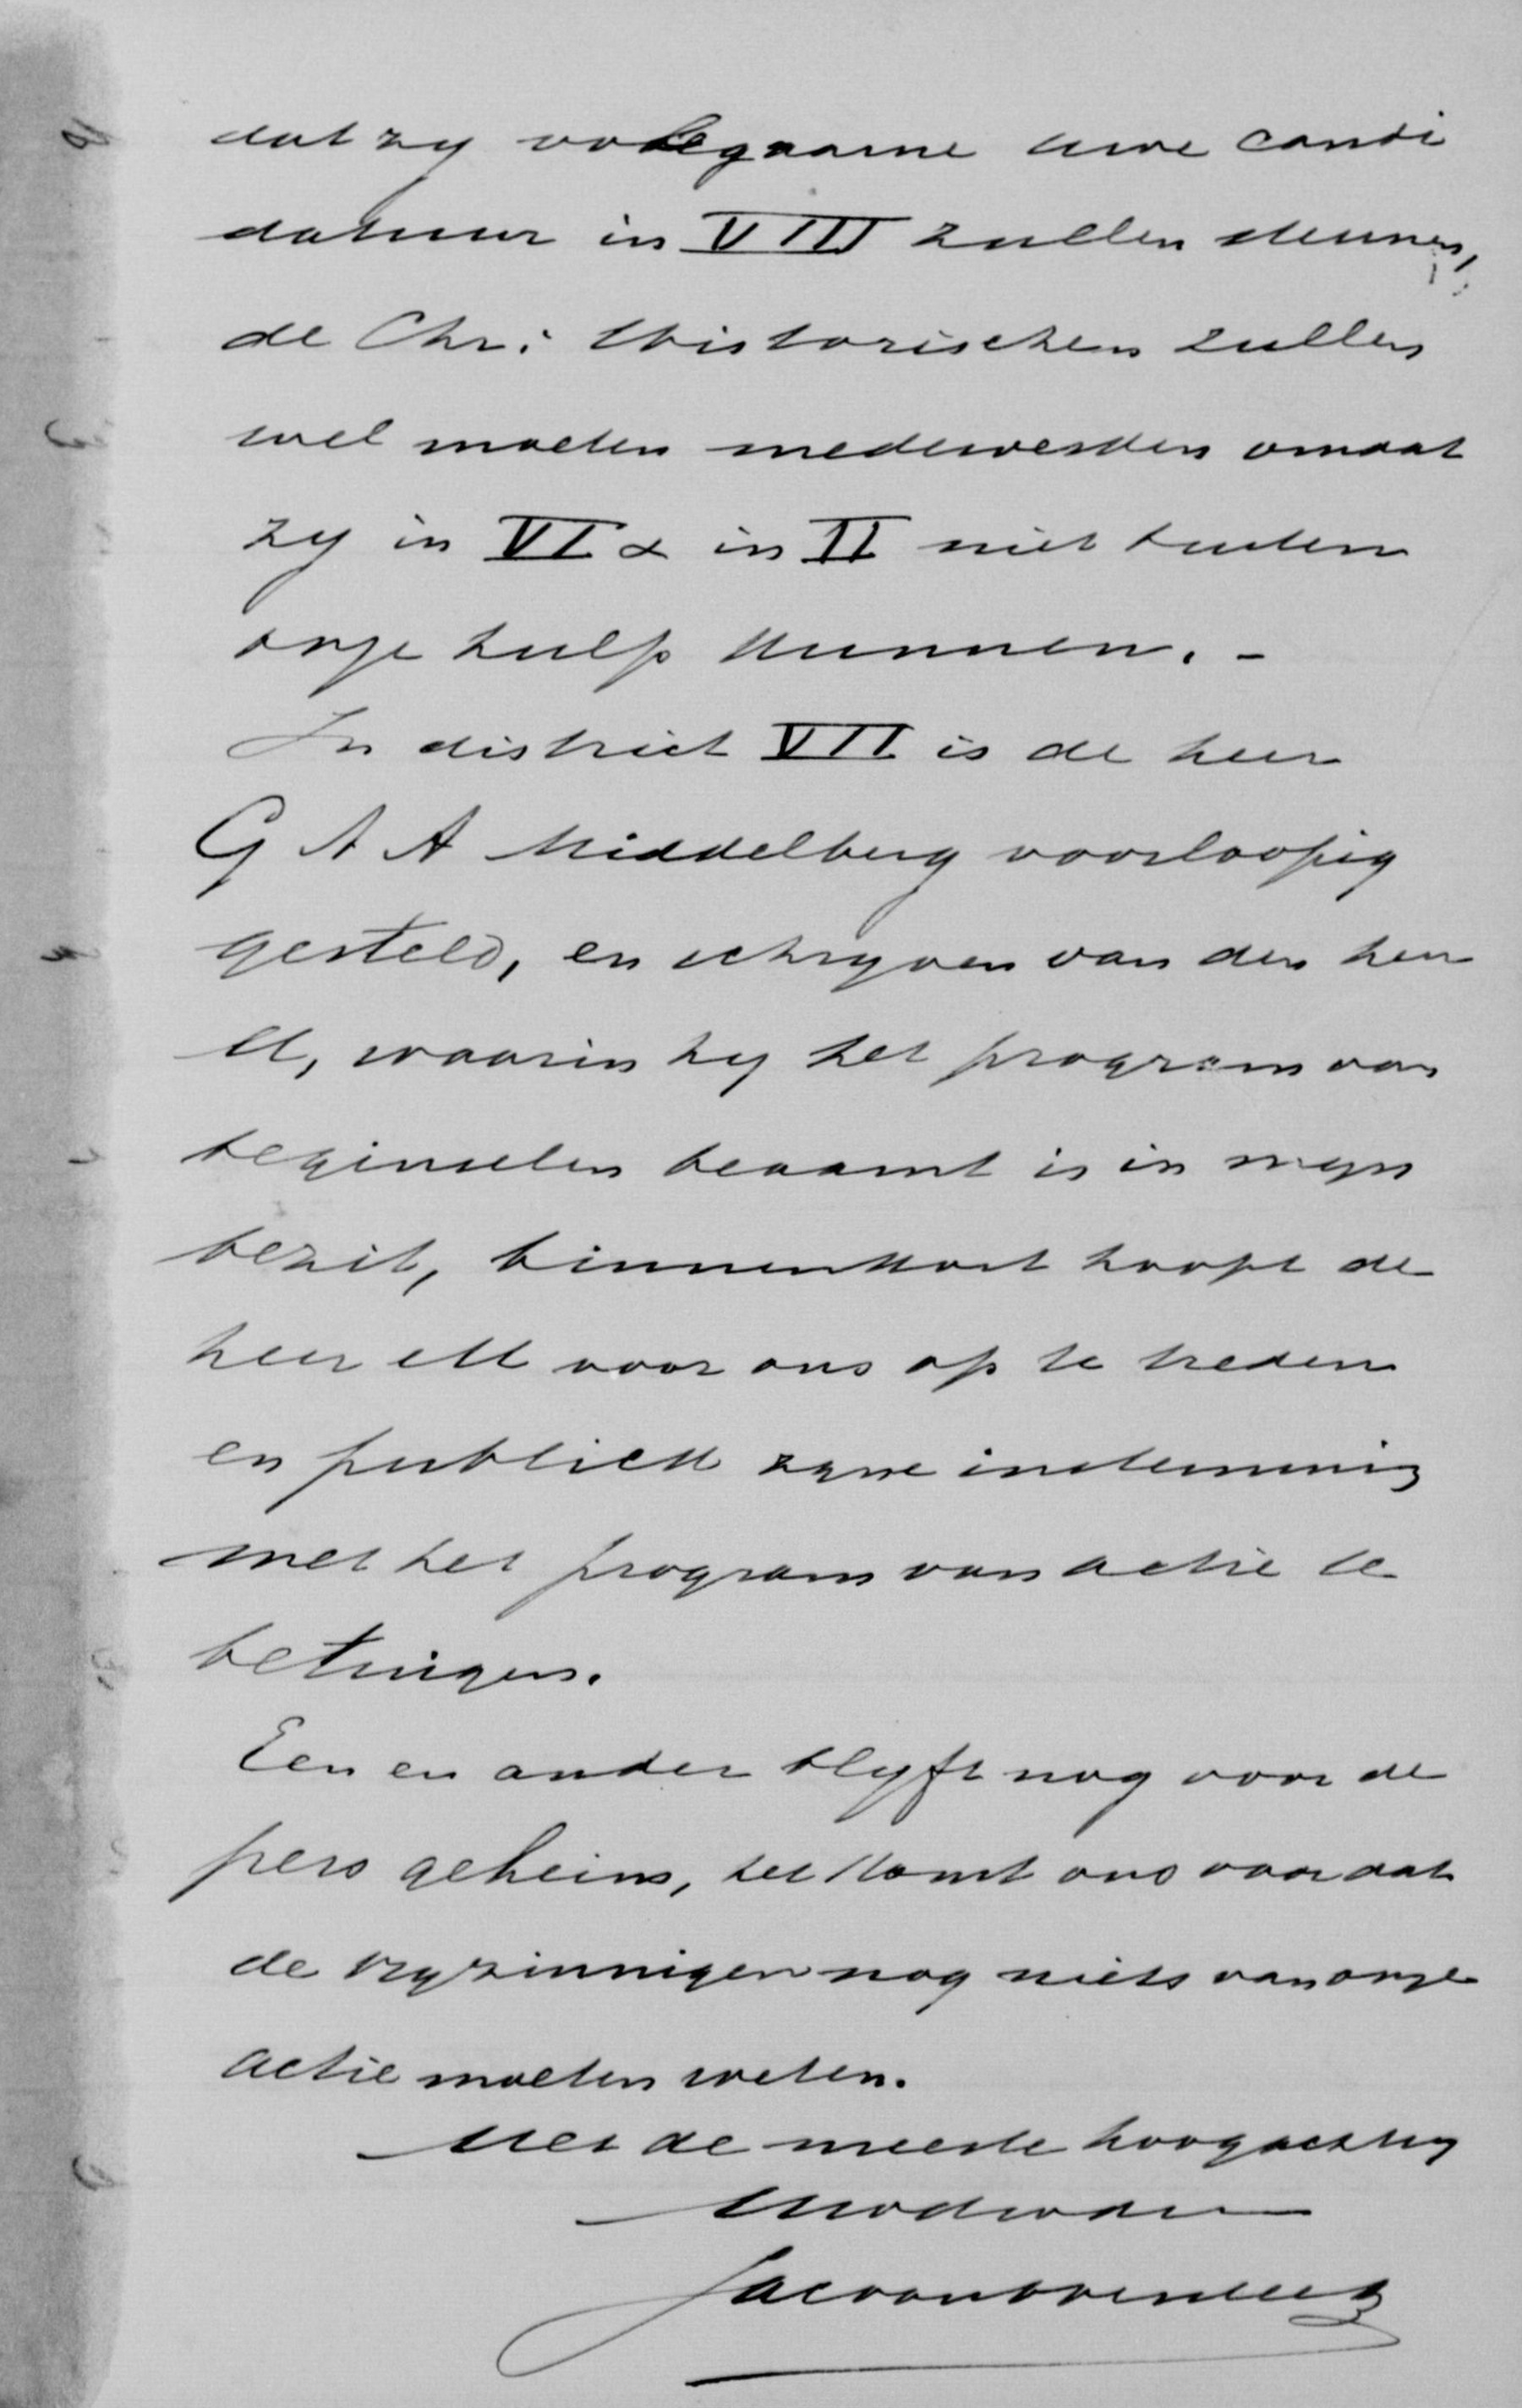 dat zy volegaarne uwe candi
datuur in VIII zullen steunen,
de Chr: Historischen zullen
wel moeten medewerken omdat
zy in VI & in II niet buiten
onze hulp kunnen. -
In district VII is de heer
G A A Middelberg voorloopig
gesteld, en schryven van den heer
M, waarin hy het program van
beginselen beaamt is in myn
bezit, binnenkort hoopt de
heer M voor ons op te treden
en publiek zyne instemming
met het program van actie te
betuigen.
Een en ander blyft nog voor de
pers geheim, het komt ons voor dat
de vryzinnigen nog niets van onze
actie moeten weten.
Met de meeste hoogachting
Uwdwdr
Jac van